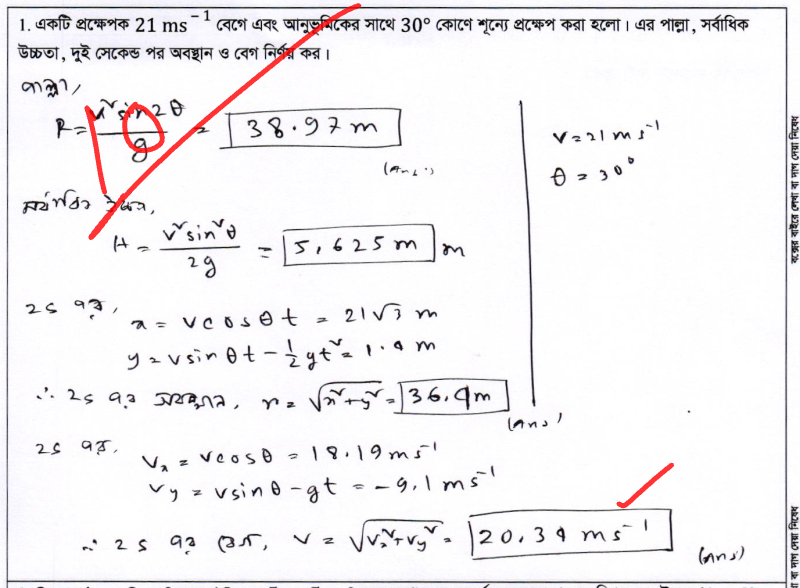 1. একটি প্রক্ষেপক 21 ms⁻¹ বেগে এবং আনুভূমিকের সাথে 30° কোণে শূন্যে প্রক্ষেপ করা হলো। এর পাল্লা, সর্বাধিক
উচ্চতা, দুই সেকেন্ড পর অবস্থান ও বেগ নির্ণয় কর।
পাল্লা,
R = v² sin2θ / g = 38.97 m
(Ans:)
v = 21 ms⁻¹
θ = 30°
সর্বাধিক উচ্চতা,
H = v² sin² θ / 2g = 5.625 m m
2s পর,
x = v cos θ t = 21√3 m
y = v sin θ t − ½ gt² = 1.4 m
∴ 2s পর অবস্থান, r = √x²+y² = 36.4 m
(Ans)
2s পর,
Vx = v cos θ = 18.19 ms⁻¹
Vy = v sin θ − gt = −9.1 ms⁻¹
∴ 2s পর বেগ, v = √Vx²+Vy² = 20.34 ms⁻¹
(Ans)
বক্সের বাইরে লেখা বা দাগ দেয়া নিষেধ
বা দাগ দেয়া নিষেধ